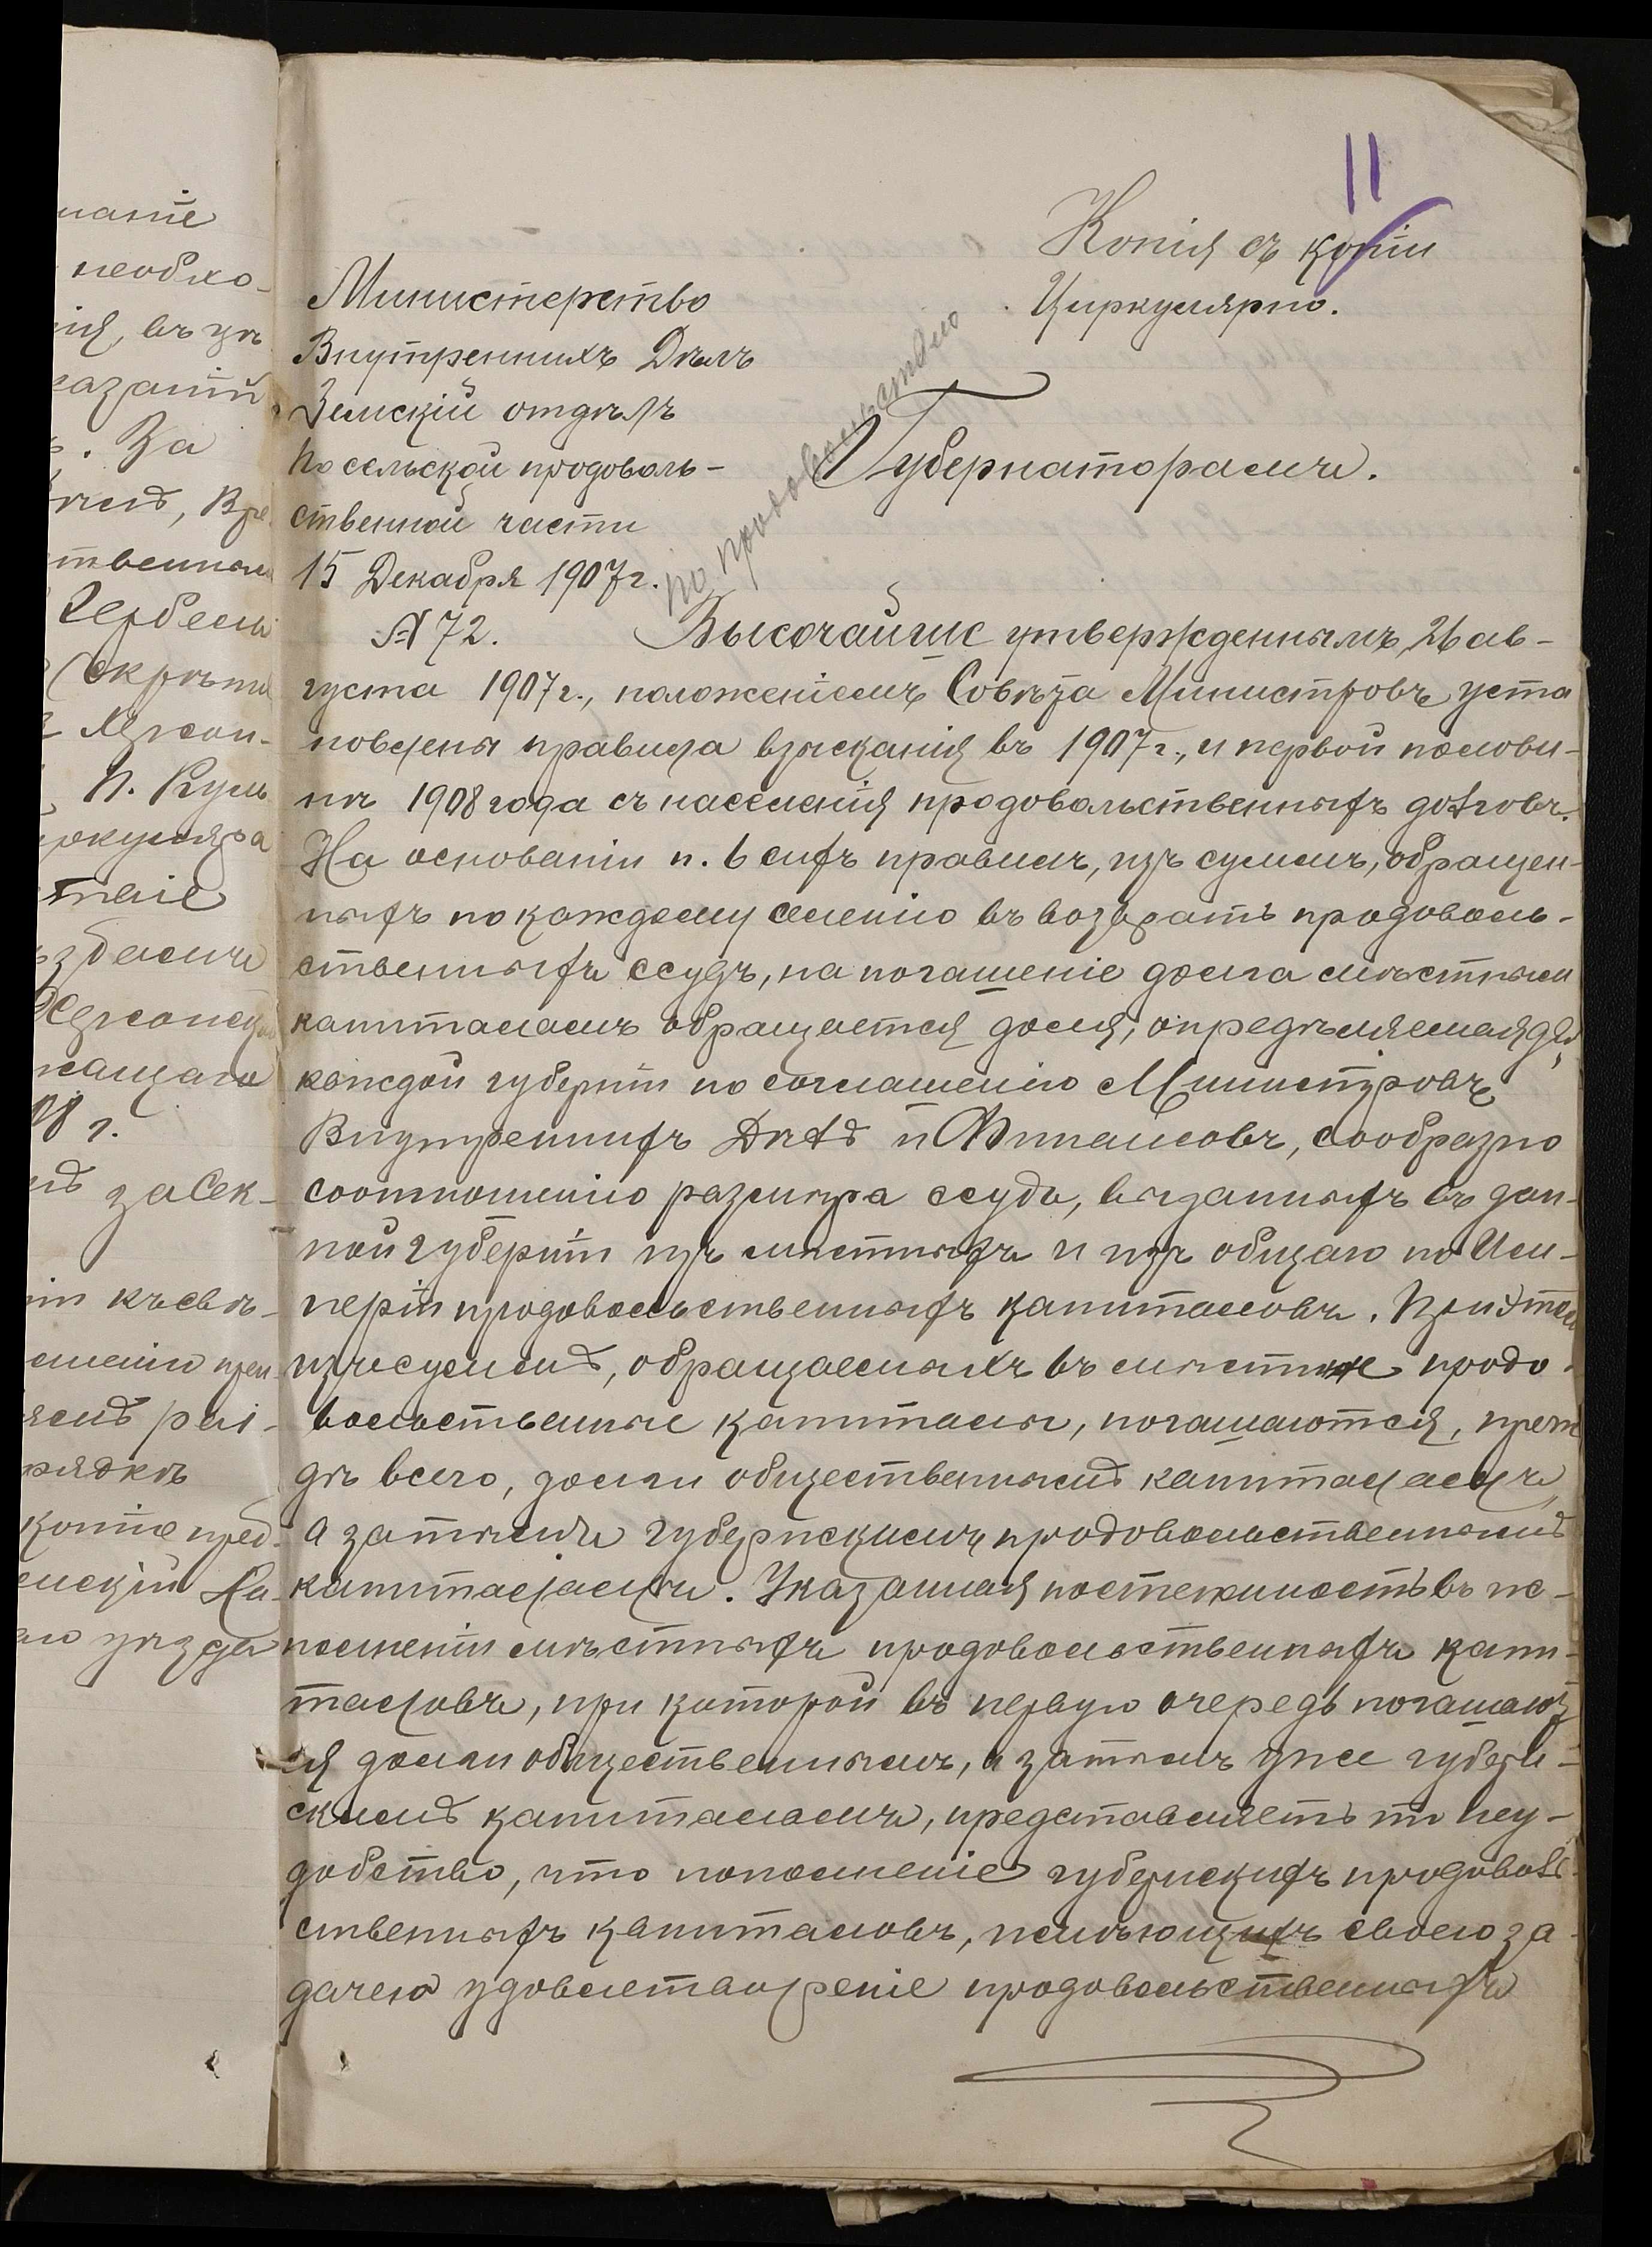 11
Копія съ копіи
Циркулярно.
Министерство
Внутреннихъ Дѣлъ
Земскій отдѣлъ
по сельской продоволь-
ственной части
15 Декабря 1907 г.
№ 72.
по продовольствію
Губернаторамъ.
Высочайше утвержденнымъ, 26 ав-
густа 1907 г., положеніемъ Совѣта Министровъ уста
новлены правила взысканія въ 1907 г., и первой полови-
нѣ 1908 года съ населенія продовольственныхъ долговъ.
На основаніи п. 6 сихъ правилъ, изъ суммъ, обращен-
ныхъ по каждому селенію въ возвратъ продоволь-
ственныхъ ссудъ, на погашеніе долга мѣстнымъ
капиталамъ обращается доля, опредѣляемая для
каждой губерніи по соглашенію Министровъ
Внутреннихъ Дѣлъ и Финансовъ, сообразно
соотношенію размѣра ссудъ, выданныхъ въ дан-
ной губерніи изъ мѣстныхъ и изъ общаго по Им-
періи продовольственныхъ капиталовъ. При этомъ
изъ суммъ, обращаемыхъ въ мѣстные продо-
вольственные капиталы, погашаются, преж
дѣ всего, долги общественнымъ капиталамъ,
а затѣмъ губернскимъ продовольственнымъ
капиталамъ. Указанная постепенность въ по-
полненіи мѣстныхъ продовольственныхъ капи-
таловъ, при которой въ первую очередь погашают
ся долги общественнымъ, а затѣмъ уже губерн-
скимъ капиталамъ, представляетъ то неу-
добство, что пополненіе губернскихъ продоволь-
ственныхъ капиталовъ, имѣющихъ своею за-
дачею удовлетвореніе продовольственныхъ
маніе
необхо-
нія, въ уѣ
казаній
. За
Вре
твеннымъ
Гербелы
(Скрѣпи
Херсон-
П. Куль
циркуляра
Херсонск
жащаго
08 г.
за Сек-
ніи къ свѣ-
рядкѣ
копіе пред-
емскій На-
аго уѣзда